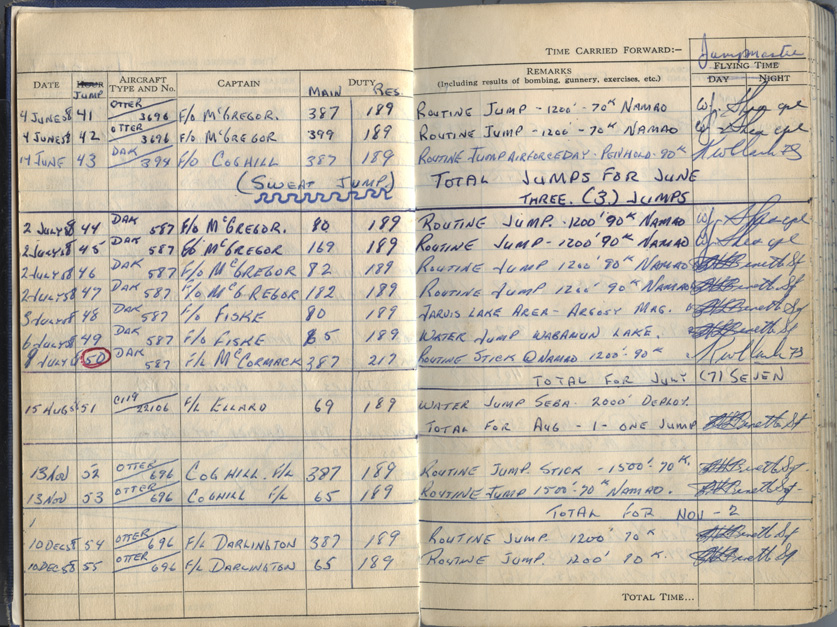 TIME CARRIED FORWARD:- Jumpmaster
DATE HOUR JUMP AIRCRAFT TYPE AND No. CAPTAIN MAIN DUTY RES. REMARKS (Including results of bombing, gunnery, exercises, etc.) FLYING TIME DAY NIGHT
4 JUNE 58 41 OTTER 3696 F/O McGREGOR. 387 189 ROUTINE JUMP - 1200' - 70K NAMAO
4 JUNE 58 42 OTTER 3696 F/O McGREGOR 399 189 ROUTINE JUMP - 1200' - 70K NAMAO
14 JUNE 43 DAK 394 F/O COGHILL 387 189 ROUTINE JUMP AIRFORCE DAY - PENHOLD - 90K
(SWEAT JUMP) TOTAL JUMPS FOR JUNE
THREE. (3) JUMPS
2 JULY 58 44 DAK 587 F/O McGREGOR. 80 189 ROUTINE JUMP. 1200' 90K NAMAO
2 JULY 58 45 DAK 587 F/O McGREGOR 169 189 ROUTINE JUMP - 1200' 90K NAMAO
2 JULY 58 46 DAK 587 F/O McGREGOR 82 189 ROUTINE JUMP 1200' 90K NAMAO
2 JULY 58 47 DAK 587 F/O McGREGOR 182 189 ROUTINE JUMP 1200' 90K NAMAO
JULY 58 48 DAK 587 F/O FISKE 80 189 JARVIS LAKE AREA - ARGOSY MAG.
6 JULY 58 49 DAK 587 F/O FISKE 65 189 WATER JUMP WABAMUN LAKE.
8 JULY 50 DAK 587 F/L McCORMACK 387 217 ROUTINE STICK @ NAMAO 1200'. 90K
TOTAL FOR JULY (7) SEVEN
15 AUG 58 51 C119 22106 F/L ELLARD 69 189 WATER JUMP SEBA. 2000' DEPLOY.
TOTAL FOR AUG - 1 - ONE JUMP
13 NOV 52 OTTER 696 COGHILL. F/L 387 189 ROUTINE JUMP. STICK - 1500'. 70K.
13 NOV 53 OTTER 696 COGHILL F/L 65 189 ROUTINE JUMP 1500'. 70K NAMAO.
TOTAL FOR NOV - 2
10 DEC 58 54 OTTER 696 F/L DARLINGTON 387 189 ROUTINE JUMP 1200' 70K
10 DEC 58 55 OTTER 696 F/L DARLINGTON 65 189 ROUTINE JUMP. 1200' 80K.
TOTAL TIME...